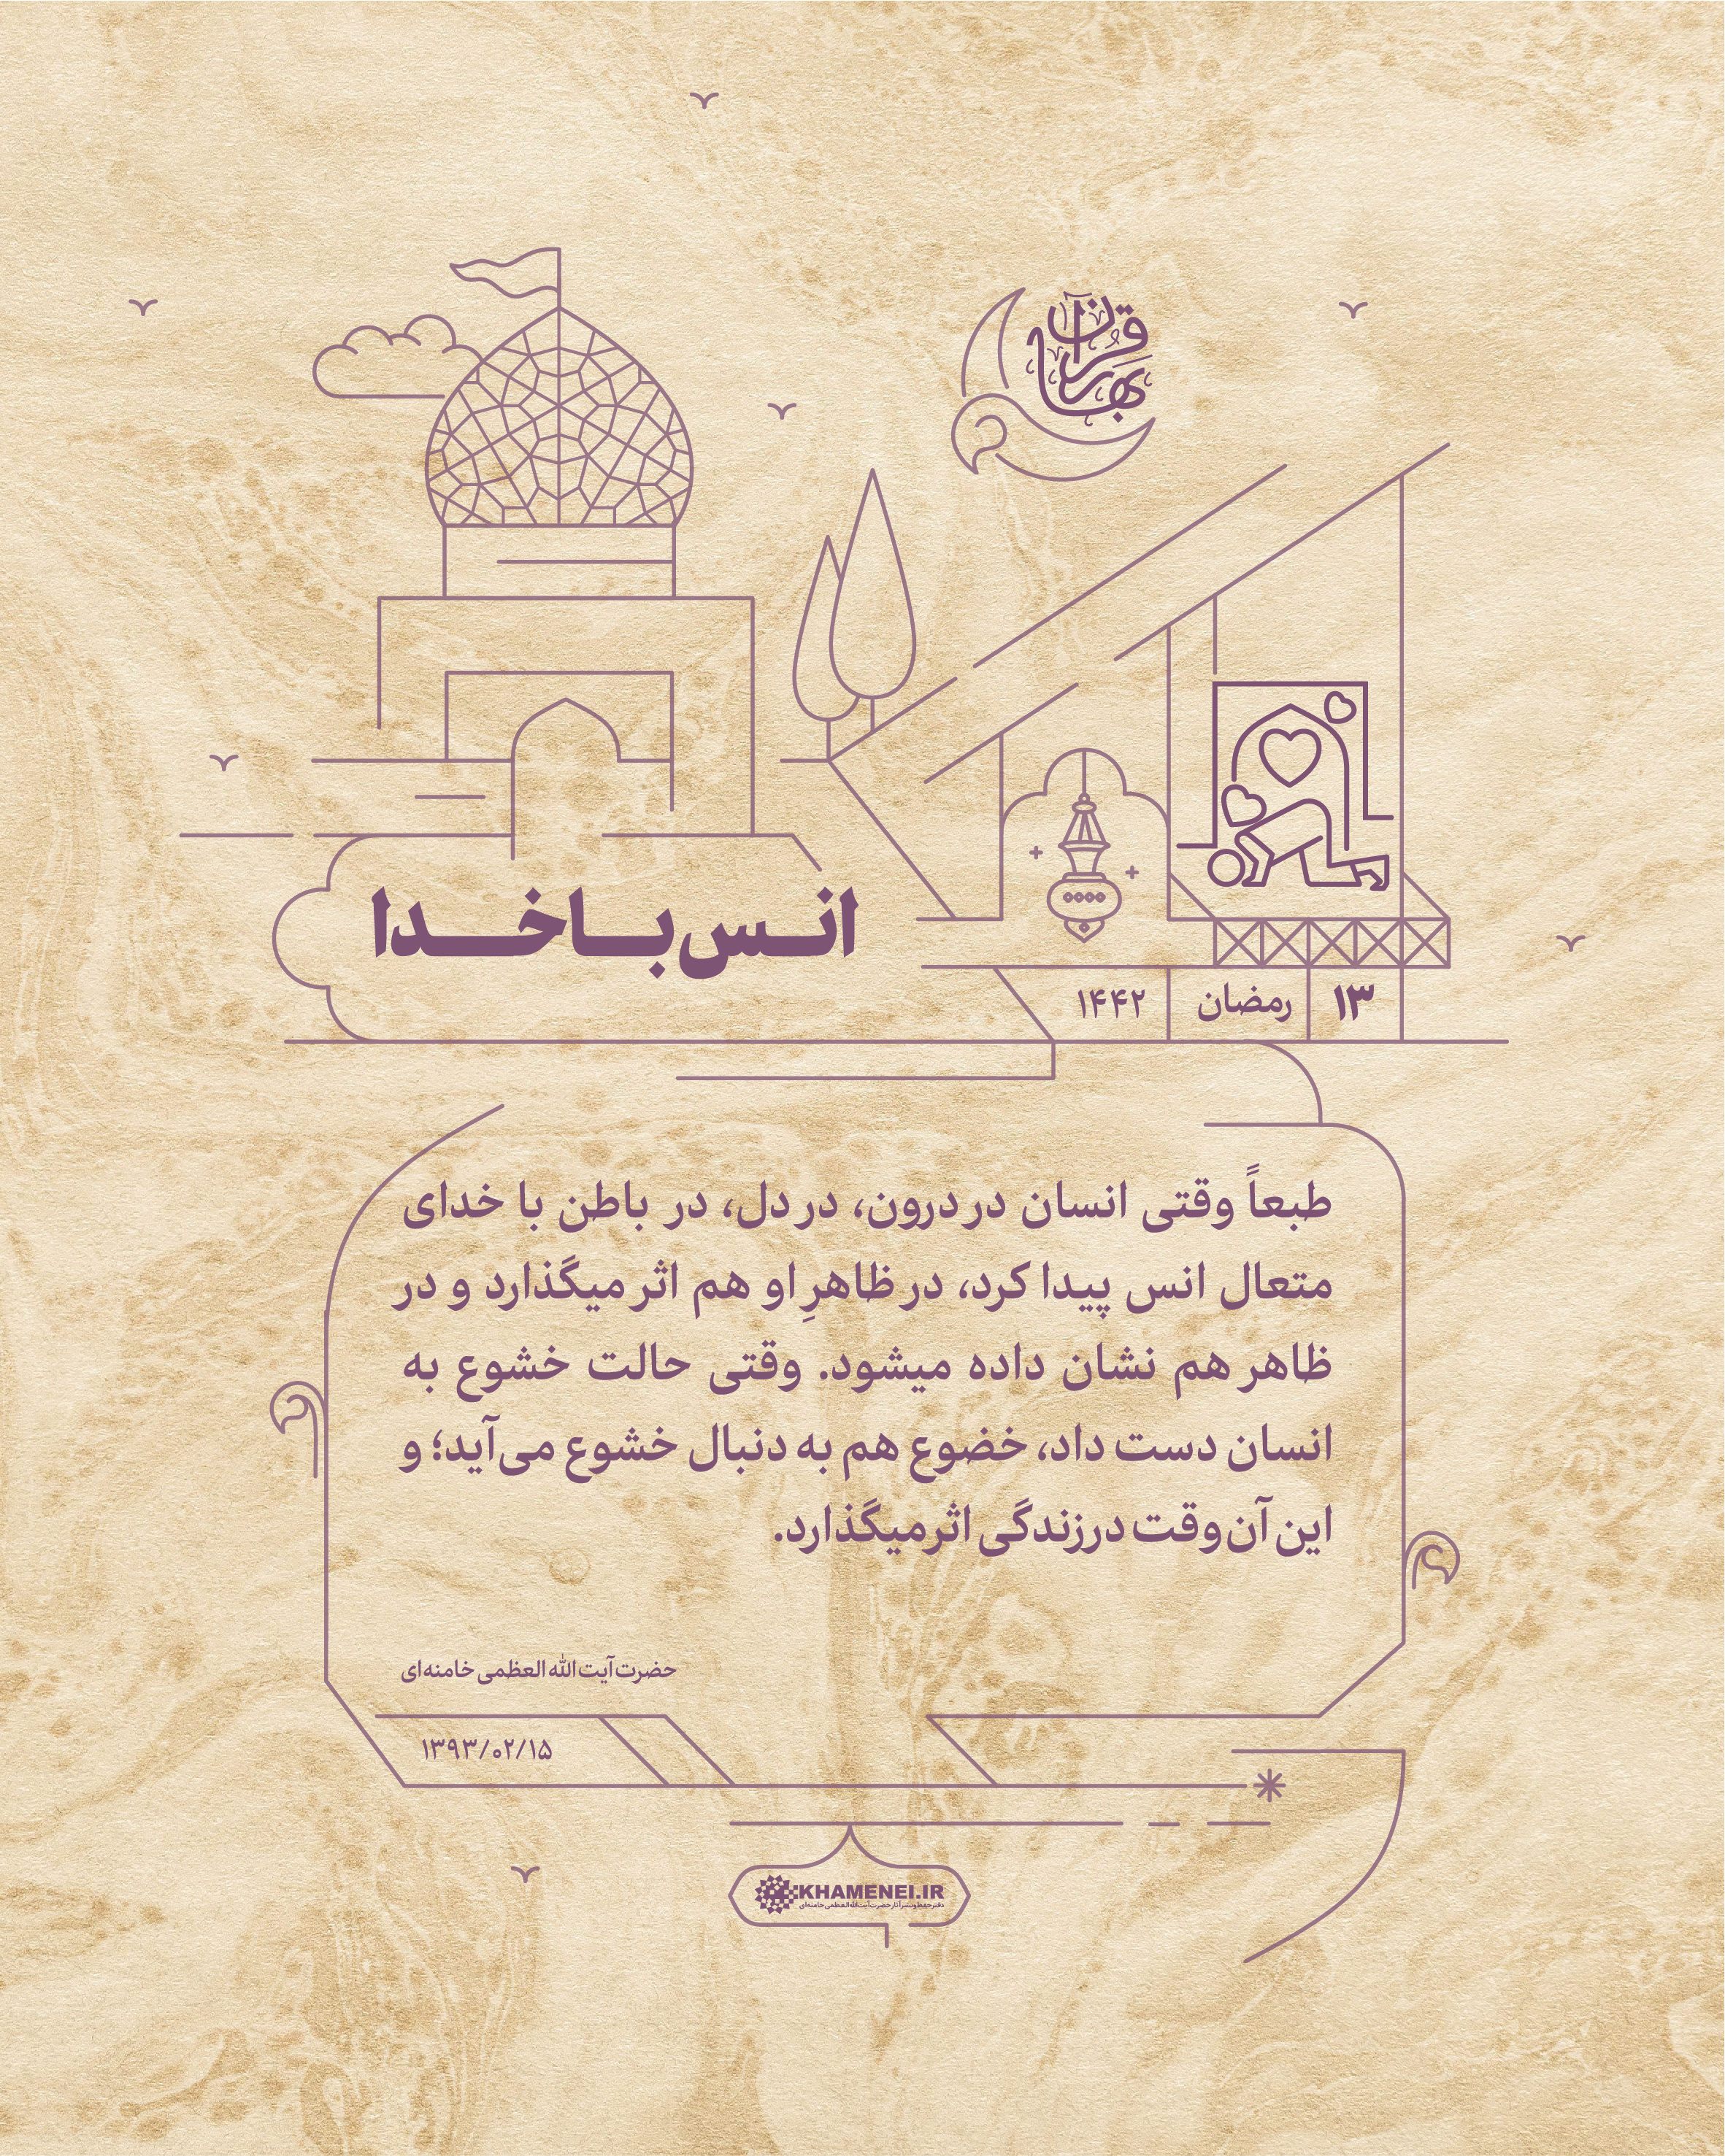 بهار قرآن
انس با خدا
۱۳ رمضان ۱۴۴۲
طبعاً وقتی انسان در درون، در دل، در باطن با خدای
متعال انس پیدا کرد، در ظاهرِ او هم اثر میگذارد و در
ظاهر هم نشان داده میشود. وقتی حالت خشوع به
انسان دست داد، خضوع هم به دنبال خشوع می‌آید؛ و
این آن وقت در زندگی اثر میگذارد.
حضرت آیت الله العظمی خامنه‌ای
۱۳۹۳/۰۲/۱۵
KHAMENEI.IR
دفتر حفظ و نشر آثار حضرت آیت الله العظمی خامنه‌ای